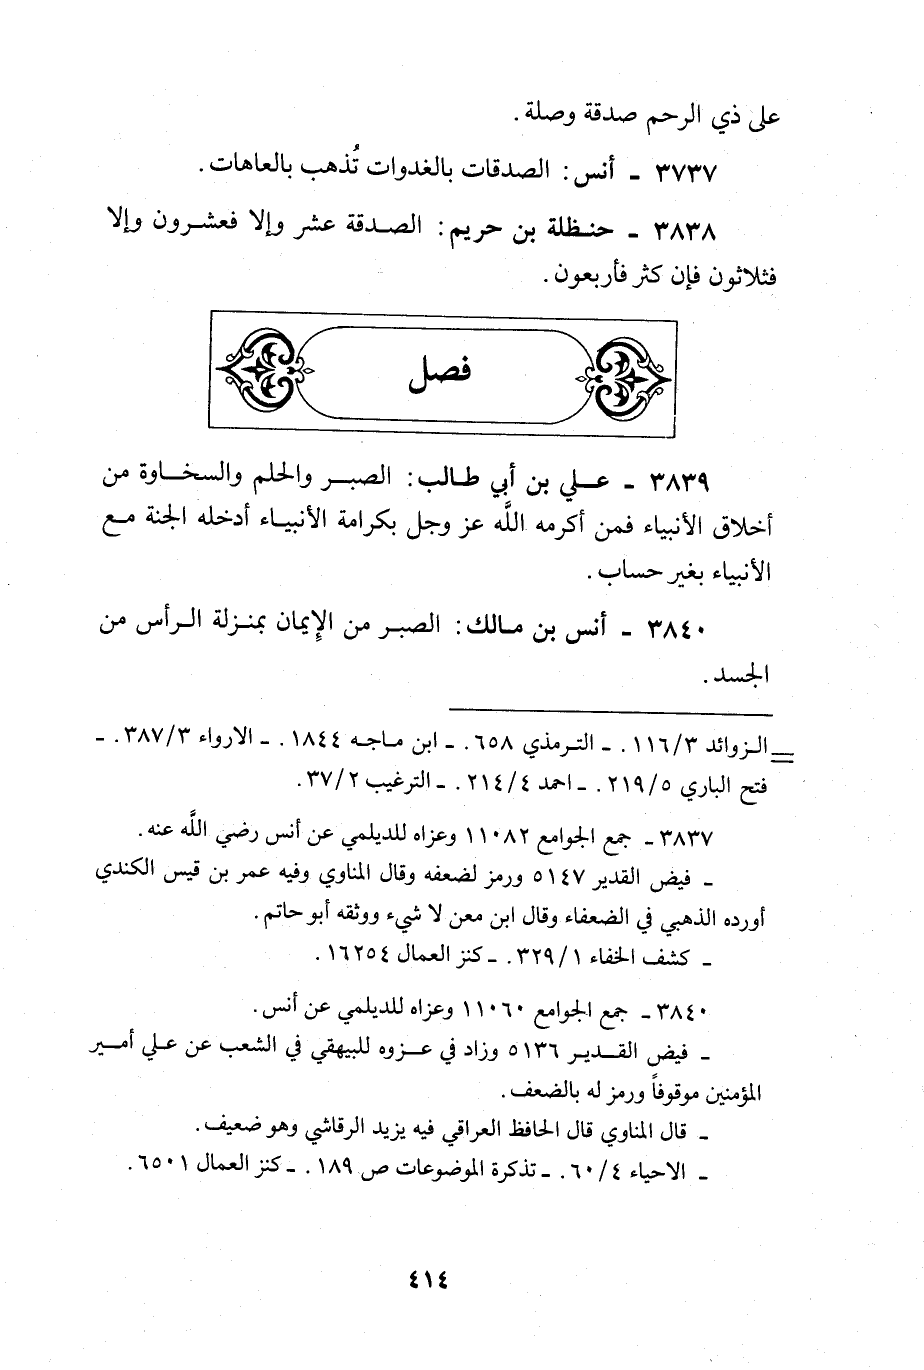 على ذي الرحم صدقة وصلة .
٣٧٣٧ ـ أنس : الصدقات بالغدوات تُذهب بالعاهات .
٣٨٣٨ ـ حنظلة بن حريم : الصدقة عشر وإلا فعشرون وإلا
فثلاثون فإن كثر فأربعون .
فصل
٣٨٣٩ ـ علي بن أبي طالب : الصبر والحلم والسخاوة من
أخلاق الأنبياء فمن أكرمه اللَّه عز وجل بكرامة الأنبياء أدخله الجنة مع
الأنبياء بغير حساب .
٣٨٤٠ ـ أنس بن مالك : الصبر من الإيمان بمنزلة الرأس من
الجسد .
= الزوائد ١١٦/٣ . ـ الترمذي ٦٥٨ . ـ ابن ماجه ١٨٤٤ . ـ الارواء ٣٨٧/٣ . ـ
فتح الباري ٢١٩/٥ . ـ احمد ٢١٤/٤ . ـ الترغيب ٣٧/٢ .
٣٨٣٧ ـ جمع الجوامع ١١٠٨٢ وعزاه للديلمي عن أنس رضي اللَّه عنه .
ـ فيض القدير ٥١٤٧ ورمز لضعفه وقال المناوي وفيه عمر بن قيس الكندي
أورده الذهبي في الضعفاء وقال ابن معن لا شيء ووثقه أبو حاتم .
ـ كشف الخفاء ٣٢٩/١ . ـ كنز العمال ١٦٢٥٤ .
٣٨٤٠ ـ جمع الجوامع ١١٠٦٠ وعزاه للديلمي عن أنس .
ـ فيض القدير ٥١٣٦ وزاد في عزوه للبيهقي في الشعب عن علي أمير
المؤمنين موقوفاً ورمز له بالضعف .
ـ قال المناوي قال الحافظ العراقي فيه يزيد الرقاشي وهو ضعيف .
ـ الاحياء ٦٠/٤ . ـ تذكرة الموضوعات ص ١٨٩ . ـ كنز العمال ٦٥٠١ .
٤١٤